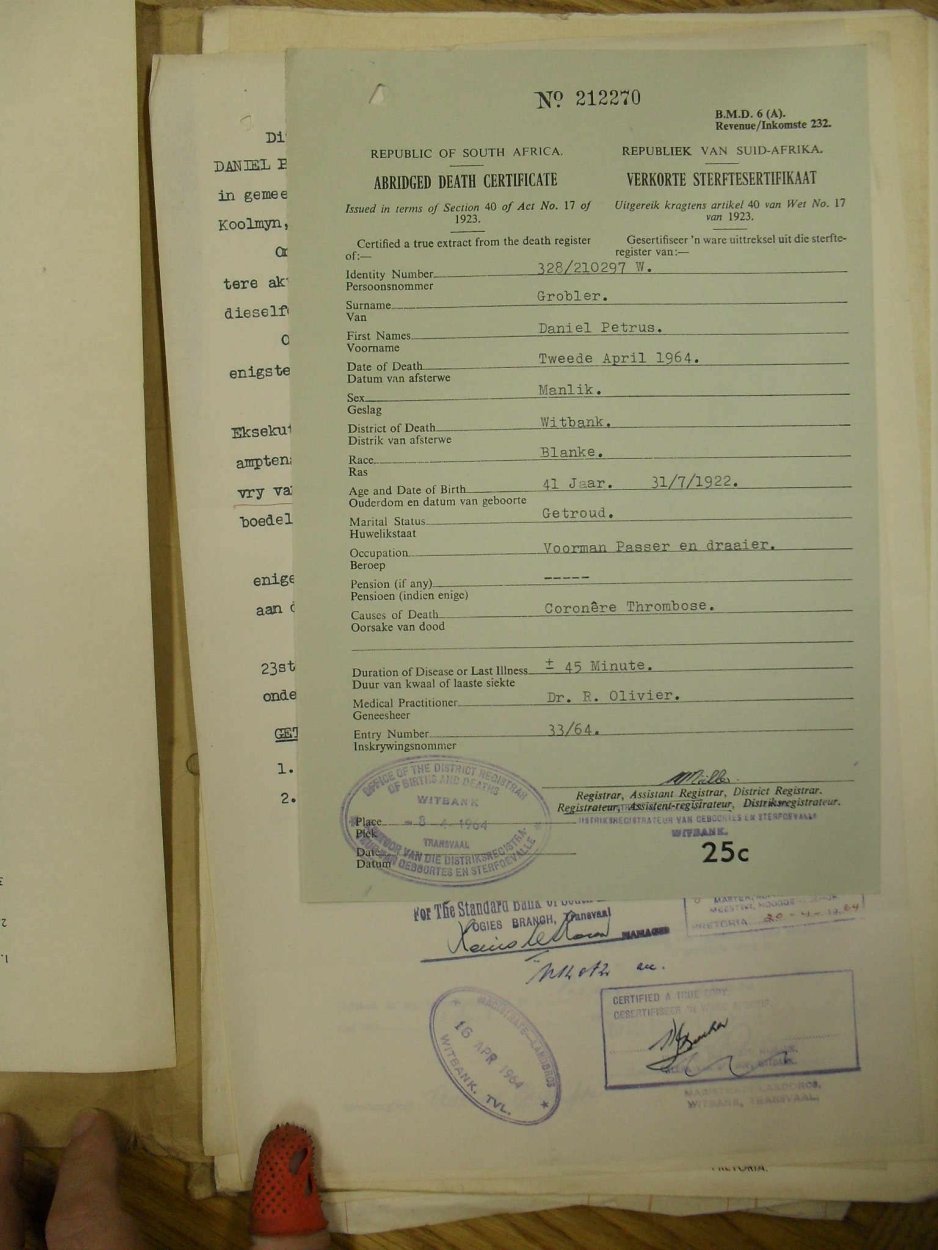 Nº 212270
B.M.D. 6 (A).
Revenue/Inkomste 232.
REPUBLIC OF SOUTH AFRICA.
REPUBLIEK VAN SUID-AFRIKA.
ABRIDGED DEATH CERTIFICATE
VERKORTE STERFTESERTIFIKAAT
Issued in terms of Section 40 of Act No. 17 of
1923.
Uitgereik kragtens artikel 40 van Wet No. 17
van 1923.
Certified a true extract from the death register
of:—
Gesertifiseer 'n ware uittreksel uit die sterfte-
register van:—
Identity Number 328/210297 W.
Persoonsnommer
Surname Grobler.
Van
First Names Daniel Petrus.
Voorname
Date of Death Tweede April 1964.
Datum van afsterwe
Sex Manlik.
Geslag
District of Death Witbank.
Distrik van afsterwe
Race Blanke.
Ras
Age and Date of Birth 41 Jaar. 31/7/1922.
Ouderdom en datum van geboorte
Marital Status Getroud.
Huwelikstaat
Occupation Voorman Passer en draaier.
Beroep
Pension (if any) -----
Pensioen (indien enige)
Causes of Death Coronêre Thrombose.
Oorsake van dood
Duration of Disease or Last Illness ± 45 Minute.
Duur van kwaal of laaste siekte
Medical Practitioner Dr. R. Olivier.
Geneesheer
Entry Number 33/64.
Inskrywingsnommer
Müller.
Registrar, Assistant Registrar, District Registrar.
Registrateur, Assistent-registrateur, Distriksregistrateur.
DISTRIKSREGISTRATEUR VAN GEBOORTES EN STERFGEVALLE
WITBANK.
25c
OFFICE OF THE DISTRICT REGISTRAR
OF BIRTHS AND DEATHS
WITBANK
Place -8-4-1964
Plek
TRANSVAAL
Date
Datum
KANTOOR VAN DIE DISTRIKSREGISTRA-
GEBOORTES EN STERFGEVALLE
Di
DANIEL P
in gemee
Koolmyn,
tere ak
dieself
O
enigste
Eksekut
ampten
vry va
boedel
enige
aan d
23st
onde
GET
1.
2.
For The Standard Bank of South
OGIES BRANCH, Transvaal
MANAGER
acc.
PRETORIA
MAGISTRATE-LANDDROS
16 APR 1964
WITBANK. TVL.
CERTIFIED A TRUE COPY.
GESERTIFISEER 'N WARE AFSKRIF.
MAGISTRATE-LANDDROS,
WITBANK, TRANSVAAL.
PRETORIA.